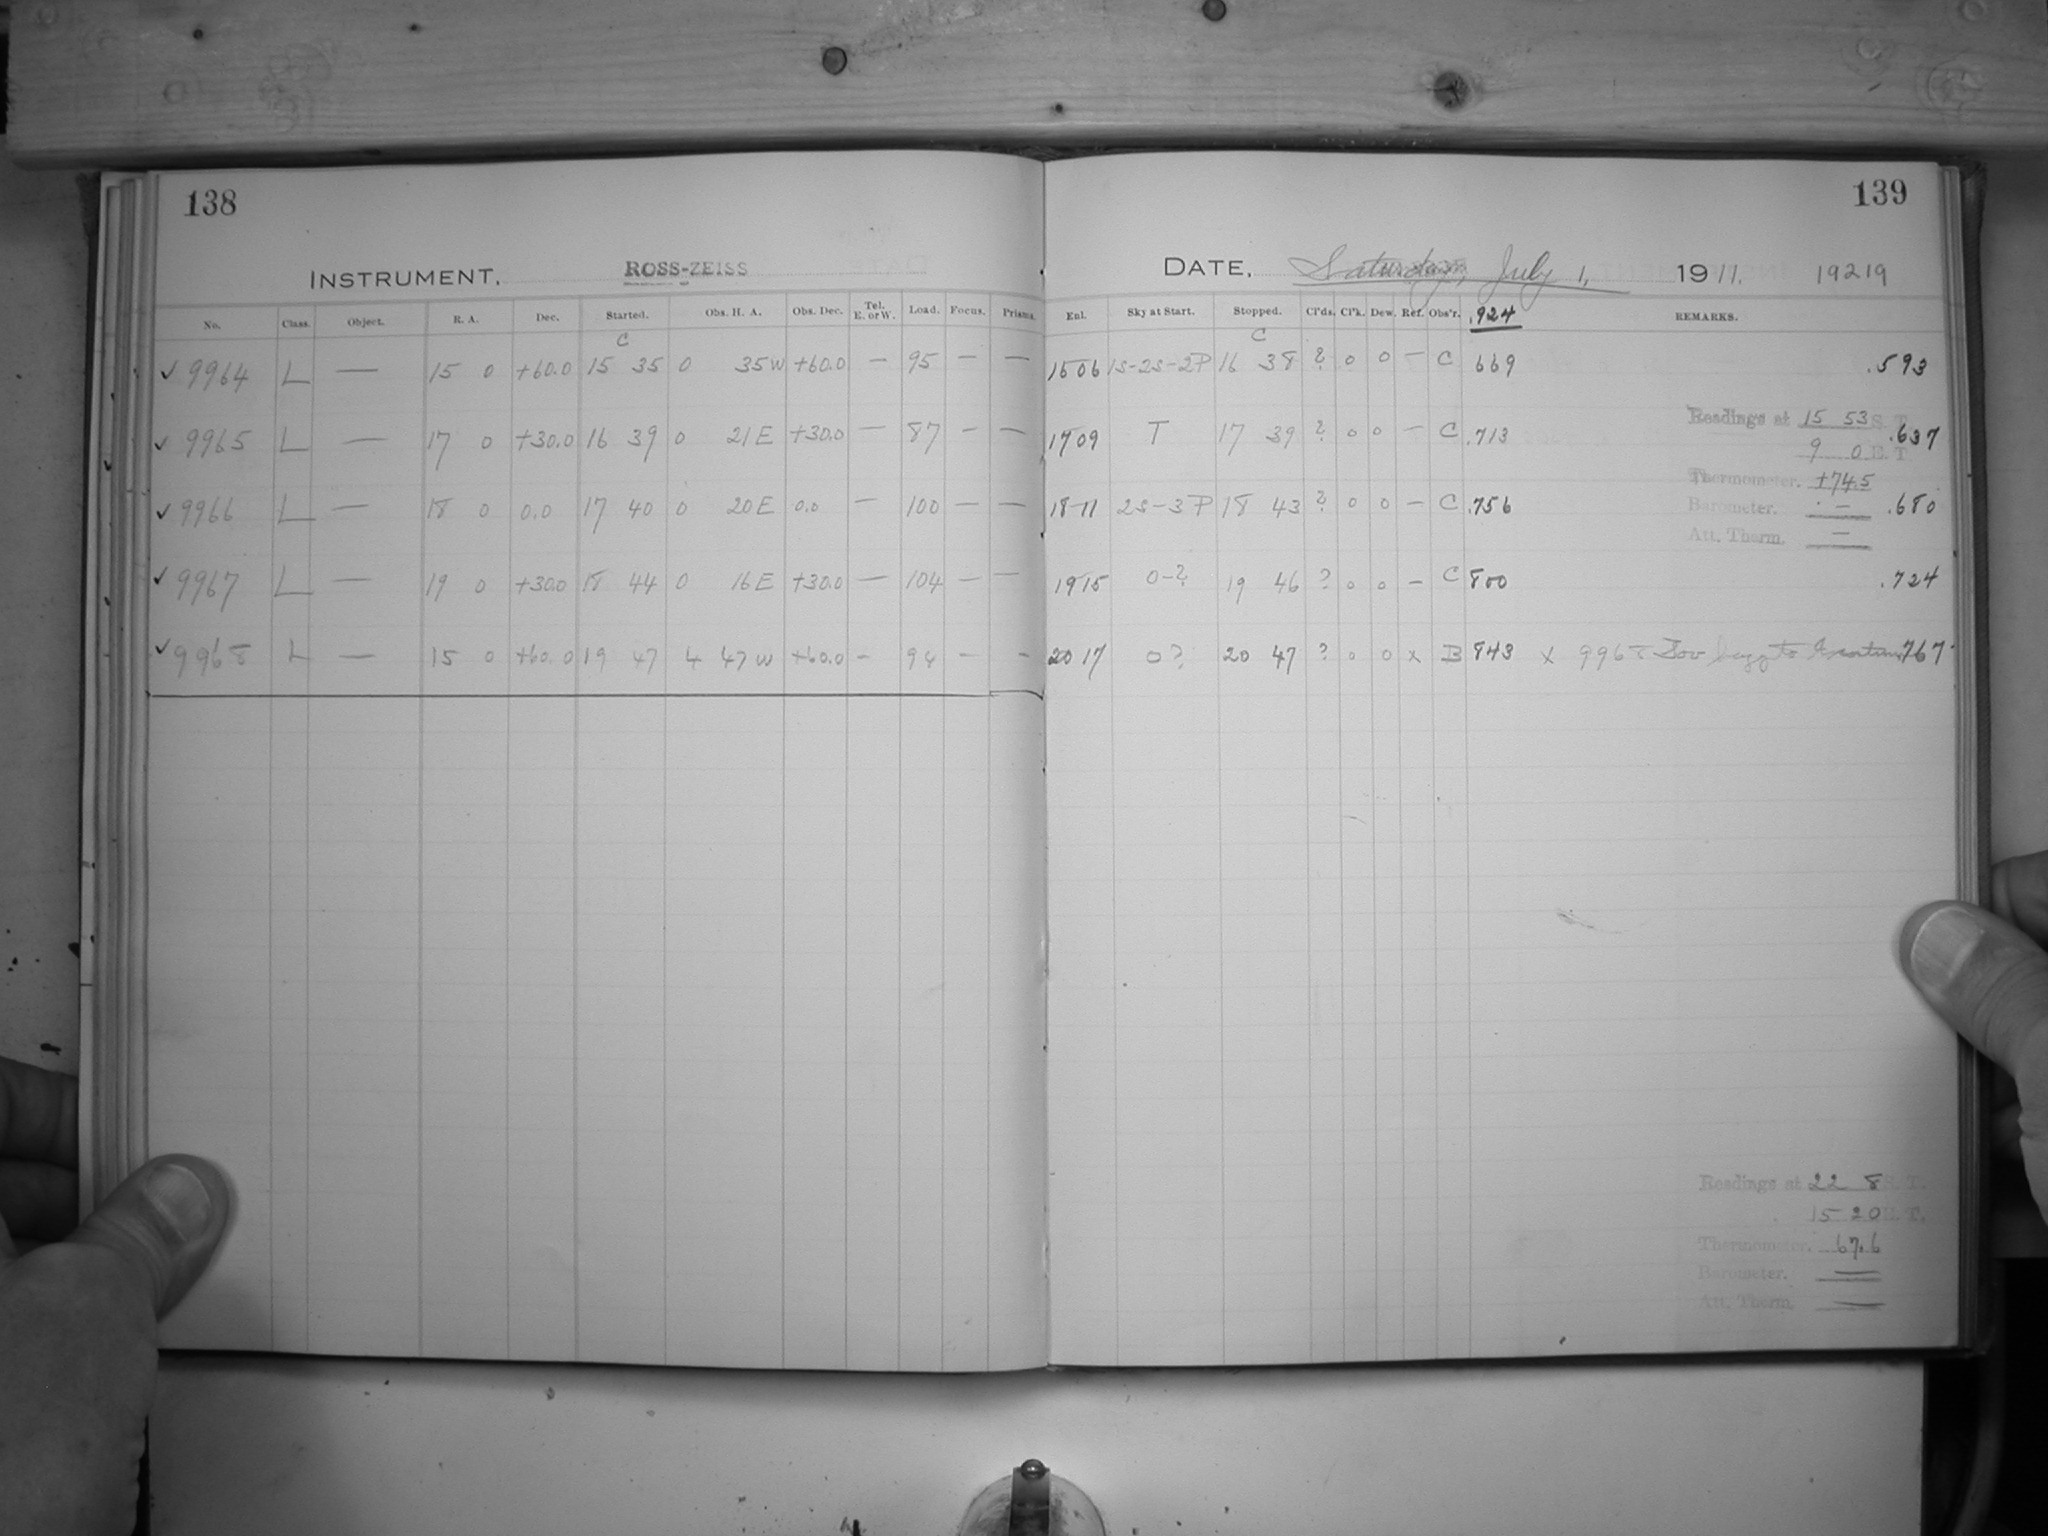 138
INSTRUMENT, ROSS-ZEISS
No. Class. Object. R. A. Dec. Started. Obs. H. A. Obs. Dec. Tel. E. or W. Load. Focus. Prisms.
C
✓ 9964 L — 15 0 +60.0 15 35 0 35 W +60.0 — 95 — —
✓ 9965 L — 17 0 +30.0 16 39 0 21 E +30.0 — 87 — —
✓ 9966 L — 18 0 0.0 17 40 0 20 E 0.0 — 100 — —
✓ 9967 L — 19 0 +30.0 18 44 0 16 E +30.0 — 104 — —
✓ 9968 L — 15 0 +60.0 19 47 4 47 W +60.0 — 94 — —
139
DATE, Saturday, July 1, 1911. 19219
Enl. Sky at Start. Stopped. Cl'ds. Cl'k. Dew. Ref. Obs'r. .924 REMARKS.
C
1606 1S-2S-2P 16 38 ? 0 0 — C 669 .593
1709 T 17 39 ? 0 0 — C .713 .637
1811 2S-3P 18 43 ? 0 0 — C .756 .680
1915 0-? 19 46 ? 0 0 — C 800 .724
2017 0? 20 47 ? 0 0 x B 843 x 9968 to .767
Readings at 15 53 S. T.
9 0 E. T.
Thermometer. +74.5
Barometer. —
Att. Therm. —
Readings at 22 8 S. T.
15 20 E. T.
Thermometer. 67.6
Barometer. —
Att. Therm. —